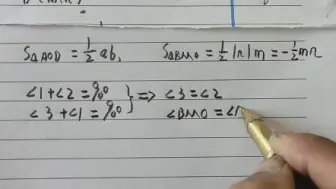 S△AOD = 1/2 ab, S△BMO = 1/2 |n| m = -1/2 mn
∠1+∠2 = 90
∠3+∠1 = 90 } => ∠3 = ∠2
∠BMO = ∠